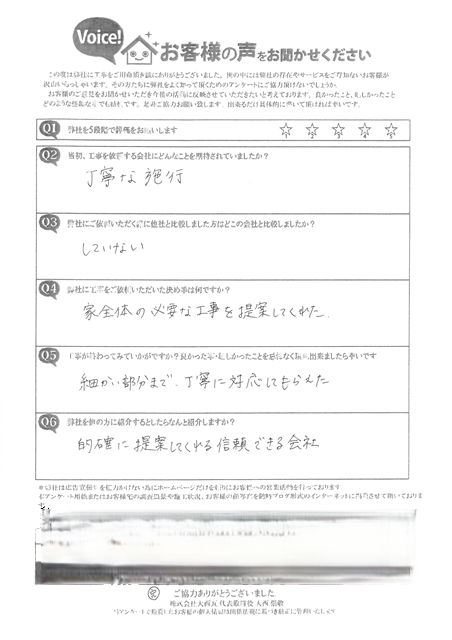 Voice!
お客様の声をお聞かせください
この度は弊社に工事をご用命頂き誠にありがとうございました。世の中には弊社の存在やサービスをご存知ないお客様が
沢山いらっしゃいます。その方たちに弊社をよく知って頂くためのアンケートにご協力頂けないでしょうか。
お客様のご意見をお聞かせいただき今後の活動に反映させていただきたいと考えております。良かったこと、悲しかったこと
どのような些細な事でも結構です。是非ご協力お願い致します。出来るだけ具体的に書いて頂ければ幸いです。
Q1 弊社を5段階で評価をお願いします ☆1 ☆2 ☆3 ☆4 ☆5
Q2 当初、工事を依頼する会社にどんなことを期待されていましたか？
丁寧な施行
Q3 弊社にご依頼いただく際に他社と比較しました方はどこの会社と比較しましたか？
していない
Q4 弊社に工事をご依頼いただいた決め手は何ですか？
家全体の必要な工事を提案してくれた.
Q5 工事が終わってみていかがですか？良かった事・悲しかったことを感じなく
出来ましたら幸いです
細かい部分まで、丁寧に対応してもらえた
Q6 弊社を他の方に紹介するとしたらなんと紹介しますか？
的確に提案してくれる信頼できる会社
ご協力ありがとうございました
代表取締役